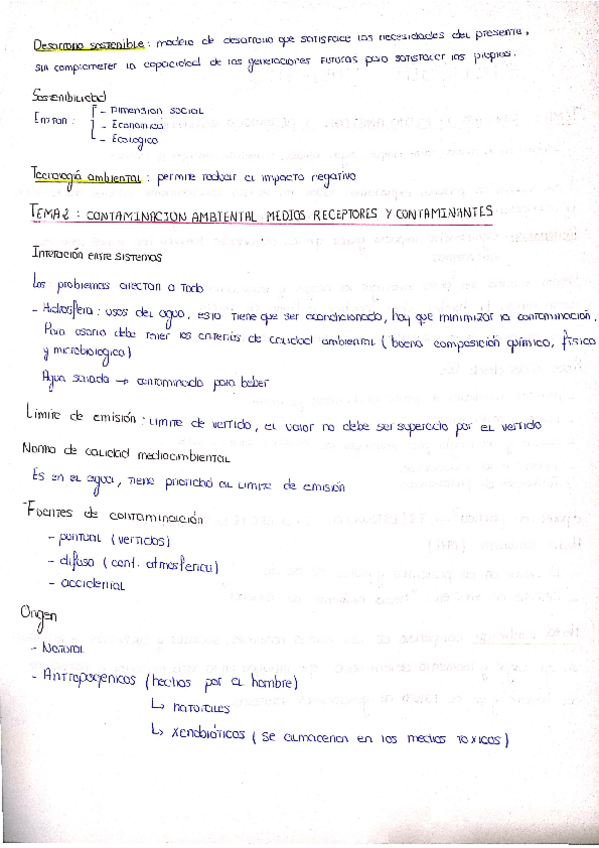 Desarrollo sostenible : modelo de desarrollo que satisface las necesidades del presente,
sin comprometer la capacidad de las generaciones futuras para satisfacer las propias.
Sostenibilidad
Entran : - Dimension social
- Economica
- Ecologico
Tecnología ambiental : permite reducir el impacto negativo
TEMA 2 : CONTAMINACION AMBIENTAL MEDIOS RECEPTORES Y CONTAMINANTES
Interación entre sistemas
Los problemas afectan a todo
- Hidrosfera : usos del agua, esta tiene que ser acondicionado, hay que minimizar la contaminación.
Para usarla debe tener los criterios de calidad ambiental ( buena composición químico, físico
y microbiologico)
Agua salada → contaminada para beber
Límite de emisión : limite de vertido, el valor no debe ser superado por el vertido
Norma de calidad medioambiental
Es en el agua, tiene prioridad al limite de emisión
- Fuentes de contaminación
- puntual ( vertidos)
- difusa ( cont. atmosferica)
- accidental
Origen
- Natural
- Antropogenicos (hechos por el hombre)
↳ naturales
↳ xenobióticos ( se almacenan en los medios toxicos)